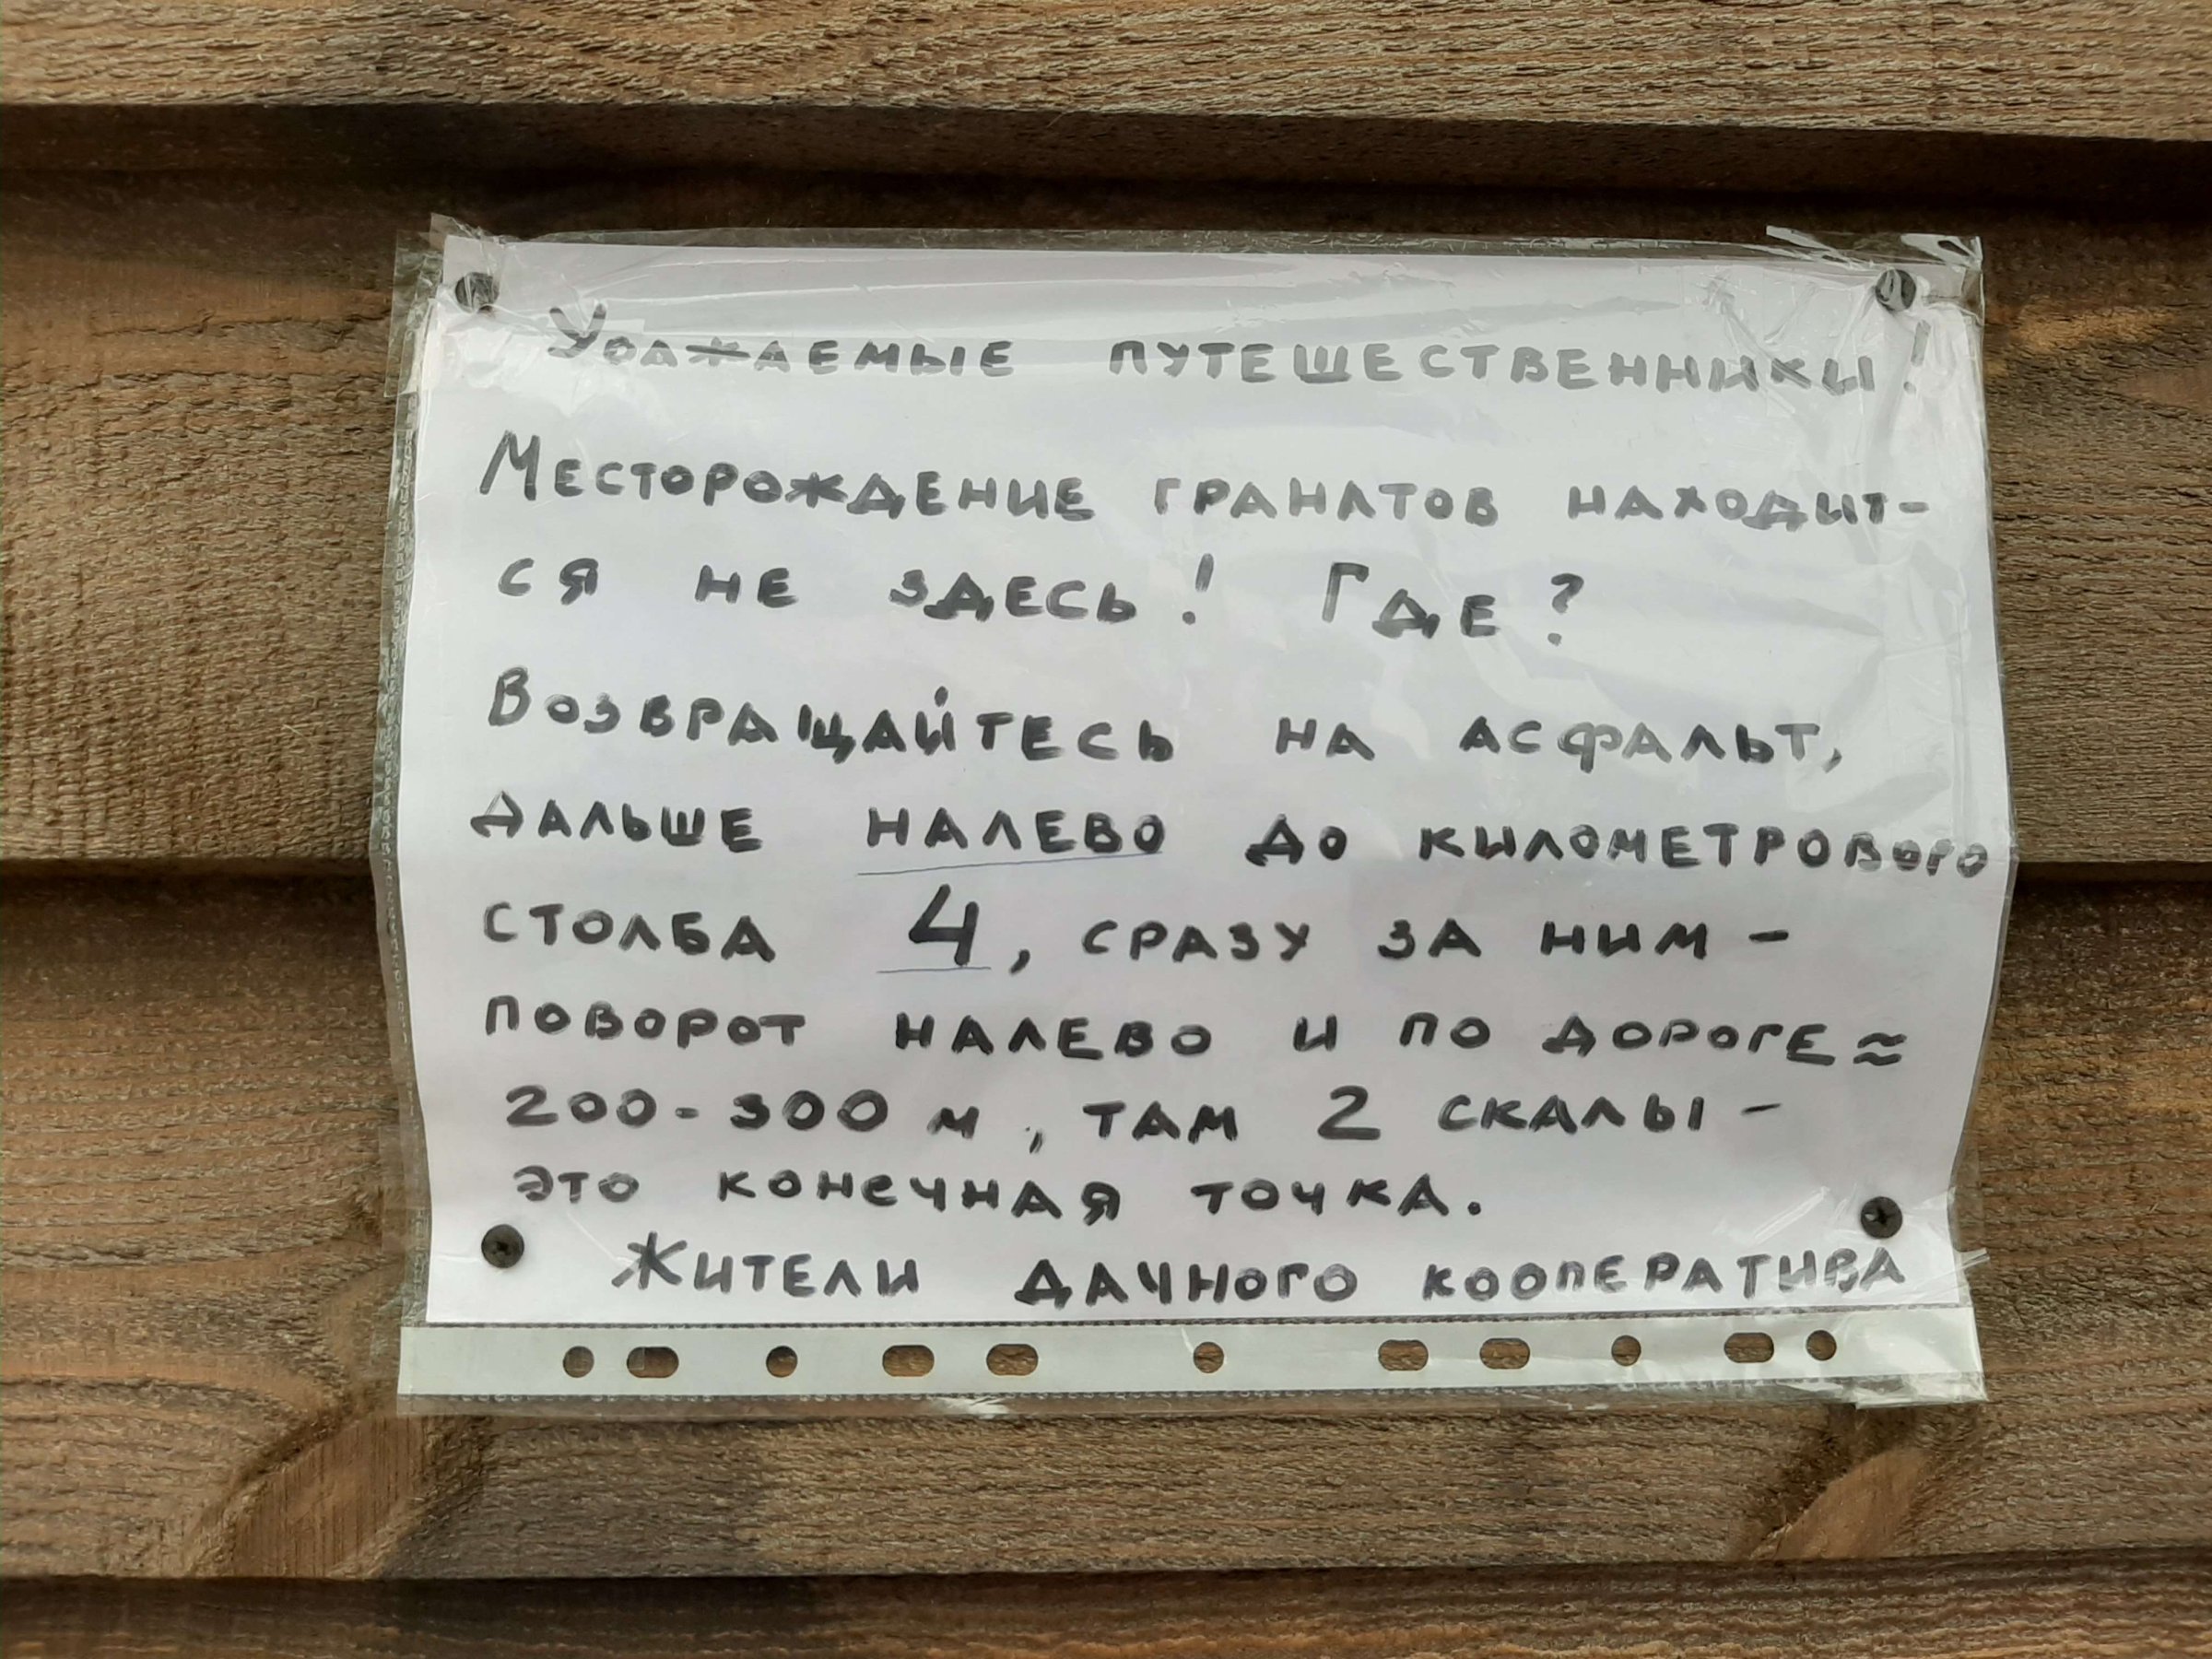 Уважаемые путешественники!
Месторождение гранатов находит-
ся не здесь! Где?
Возвращайтесь на асфальт,
дальше налево до километрового
столба 4, сразу за ним -
поворот налево и по дороге ≈
200-300 м, там 2 скалы -
это конечная точка.
Жители дачного кооператива